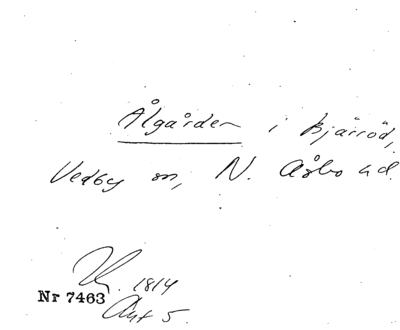 Ålgården i Bjärröd,
Vedby sn, N. Åsbo hd.
1814
Nr 7463
Akt 5.